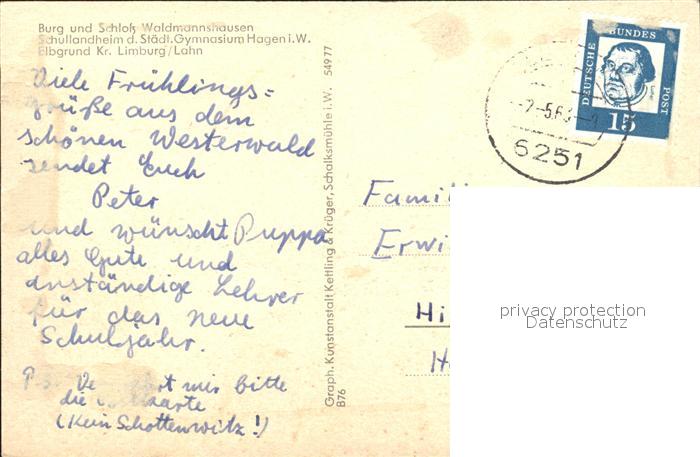 Burg und Schloß Waldmannshausen
Schullandheim d. Städt. Gymnasium Hagen i. W.
Elbgrund Kr. Limburg/Lahn
Viele Frühlings=
grüße aus dem
schönen Westerwald
sendet Euch
Peter
und wünscht Puppa
alles Gute und
anständige Lehrer
für das neue
Schuljahr.
P.S. mir bitte
die
(Kein Schottenwitz!)
Graph. Kunstanstalt Kettling & Krüger, Schalksmühle i. W. 54977
B76
DEUTSCHE BUNDES POST
15
-2.-5.63
6251
Famili
Erwi
Hi
H
privacy protection
Datenschutz